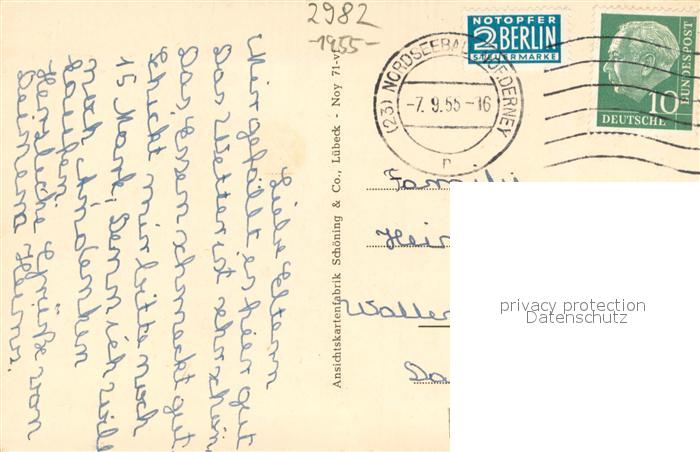 2982
-1955-
NOTOPFER
2 BERLIN
STEUERMARKE
(23) NORDSEEBAD NORDERNEY
-7. 9. 55 -16
n
10
DEUTSCHE
BUNDESPOST
Liebe Eltern
Mir gefällt es hier gut
Das Wetter ist sehr schön
Das Essen schmeckt gut.
Schickt mir bitte noch
15 Mark, Denn ich will
noch Andenken
kaufen.
Herzliche Grüße von
Heino.
Ansichtskartenfabrik Schöning & Co., Lübeck - Noy 71-v
Famili
Hei
Waller
Da
privacy protection
Datenschutz